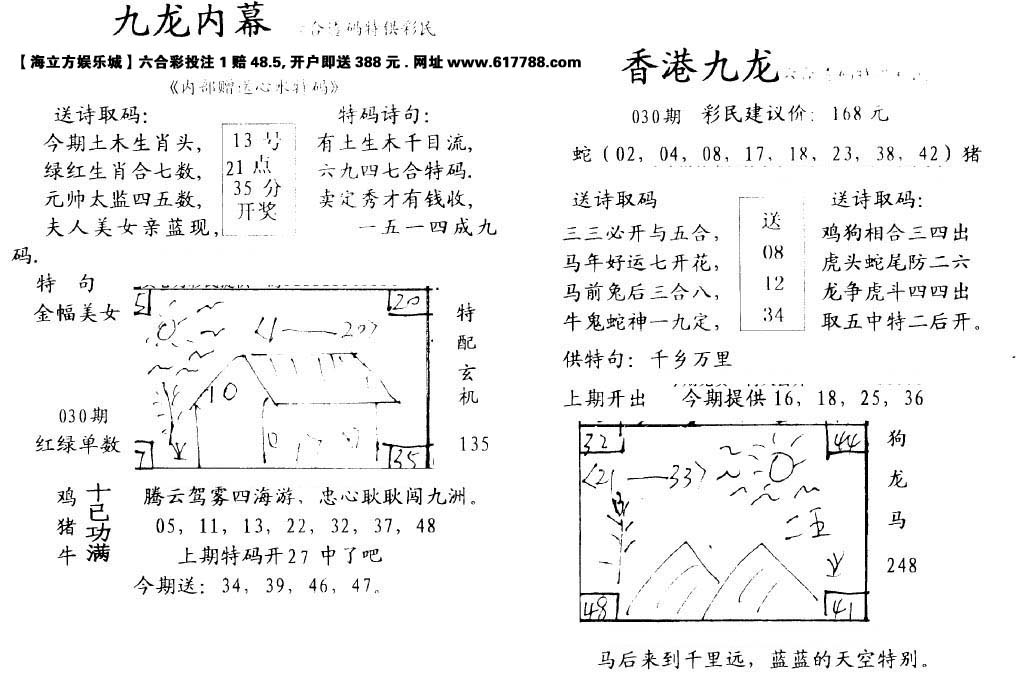 九龙内幕
六合选码特供彩民
【海立方娱乐城】六合彩投注 1 赔 48.5, 开户即送 388 元 . 网址 www.617788.com
《内部赠送心水特码》
送诗取码:
今期土木生肖头,
绿红生肖合七数,
元帅太监四五数,
夫人美女亲蓝现,
码.
13 号
21 点
35 分
开奖
特码诗句:
有土生木千目流,
六九四七合特码.
卖定秀才有钱收,
一五一四成九
特 句
金幅美女
030期
红绿单数
5
20
〈1——20〉
10
0
7
35
特
配
玄
机
135
鸡
猪
牛
十己功满
腾云驾雾四海游、忠心耿耿闯九洲。
05, 11, 13, 22, 32, 37, 48
上期特码开27 中了吧
今期送: 34, 39, 46, 47。
香港九龙
030期 彩民建议价: 168 元
蛇 (02, 04, 08, 17, 18, 23, 38, 42) 猪
送诗取码
三三必开与五合,
马年好运七开花,
马前兔后三合八,
牛鬼蛇神一九定,
送
08
12
34
送诗取码:
鸡狗相合三四出
虎头蛇尾防二六
龙争虎斗四四出
取五中特二后开。
供特句: 千乡万里
上期开出 今期提供 16, 18, 25, 36
32
44
〈21——33〉
二五
48
41
狗
龙
马
248
马后来到千里远, 蓝蓝的天空特别。